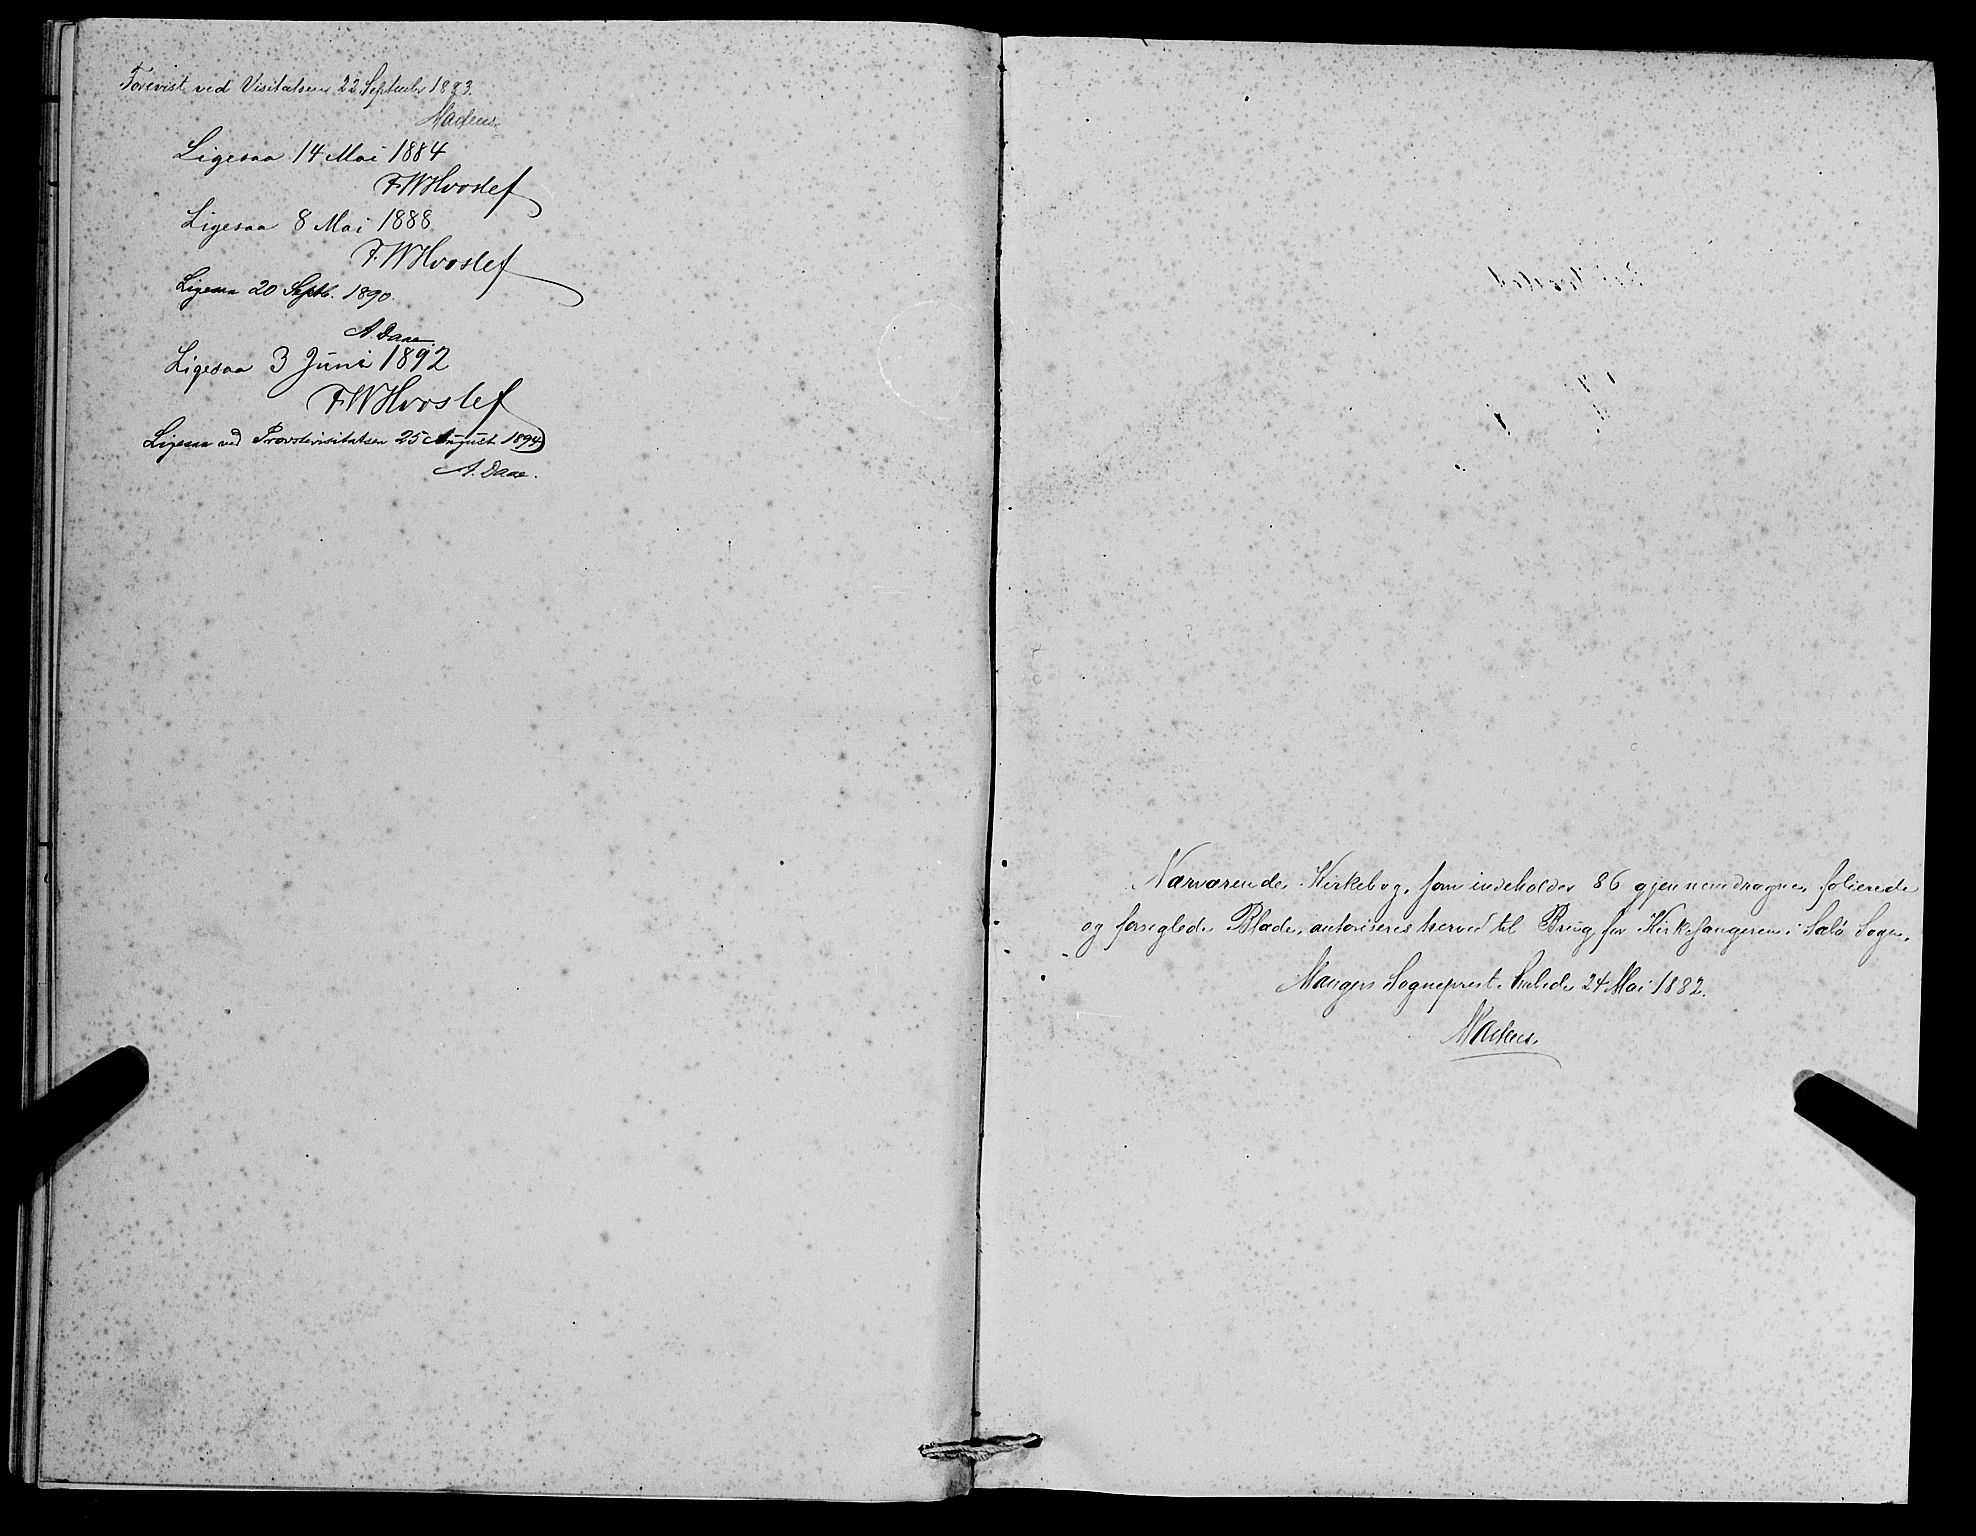 Forevist ved Visitatsen 22 Septembr 1883.
Ligesaa 14 Mai 1884
F.W.Hvoslef
Ligesaa 8 Mai 1888
F.W.Hvoslef
Ligesaa 20 Septb. 1890.
A. Daae.
Ligesaa 3 Juni 1892
F.W.Hvoslef
Ligesaa ved Provstevisitatsen 25 August 1894
A. Daae.
Nærværende Kirkebog, som indeholder 86 gjennemdragne, folierede
og forseglede Blade, autoriseres herved til Brug for Kirkesangeren i Sælø Sogn.
Mangers Sogneprest. Embede 24 Mai 1882.